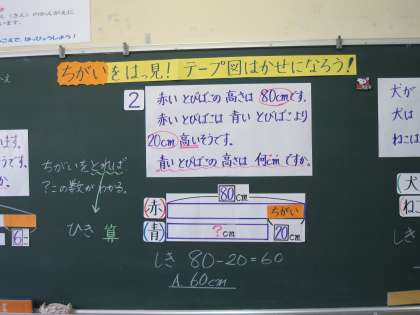 ちがいをはっ見!テープ図はかせになろう!
2
赤い とびばこの 高さは 80cmです。
赤い とびばこは 青い とびばこより
20cm 高いそうです。
青い とびばこの 高さは 何cmですか。
ちがいをとれば
?この数がわかる。
ひき算
80cm
赤
ちがい
青
?cm
20cm
しき 80-20=60
A 60cm
犬が
犬は
ねこは
犬
ねこ